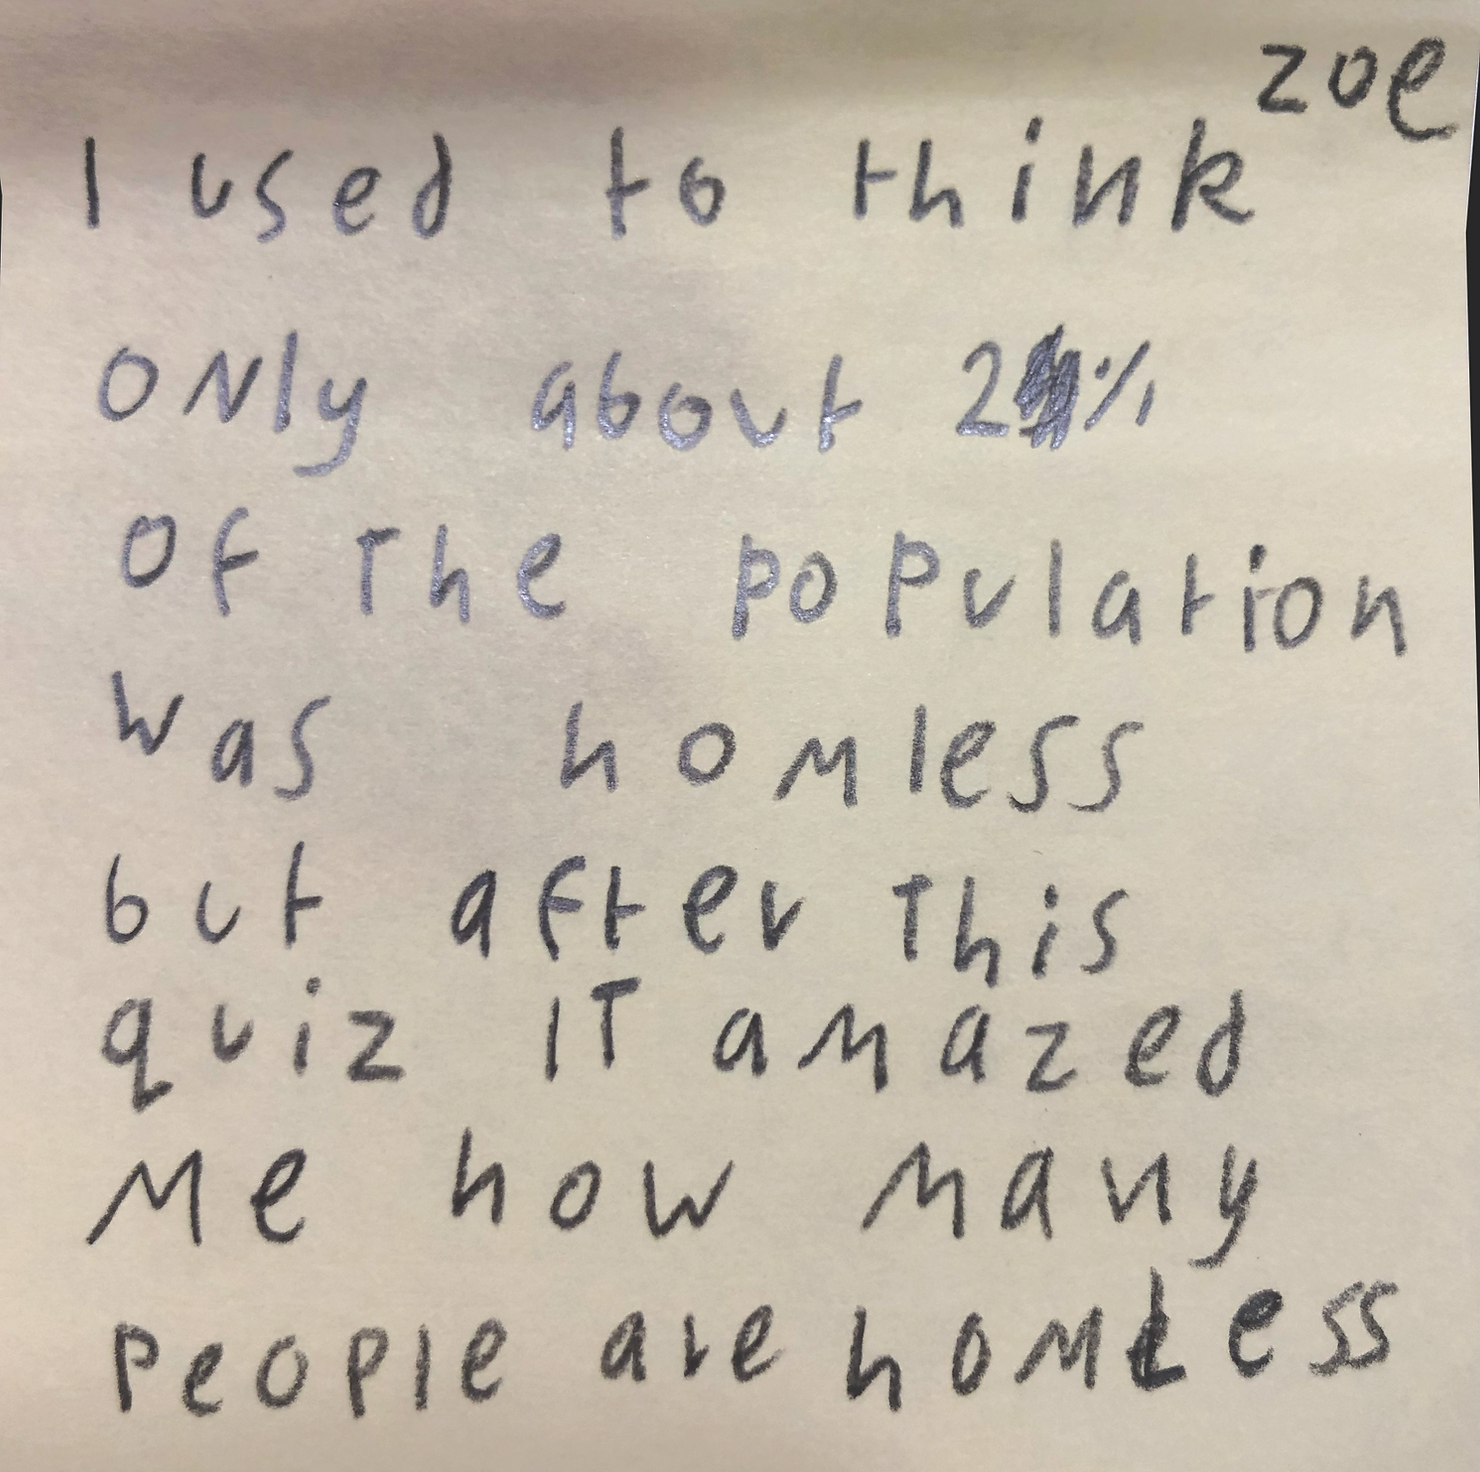 zoe
I used to think
only about 2%
of the population
was homless
but after this
quiz IT amazed
me how many
people are homLess